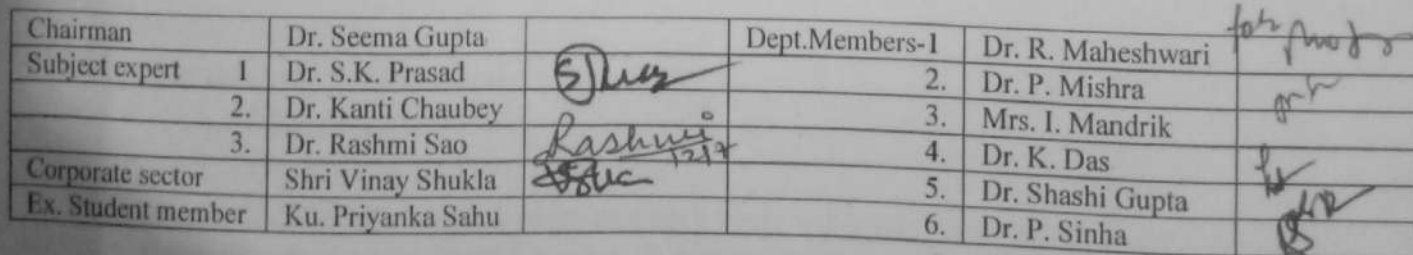 Chairman Dr. Seema Gupta Dept.Members-1 Dr. R. Maheshwari for
Subject expert 1 Dr. S.K. Prasad 2. Dr. P. Mishra
2. Dr. Kanti Chaubey 3. Mrs. I. Mandrik
3. Dr. Rashmi Sao Rashmi 4. Dr. K. Das
Corporate sector Shri Vinay Shukla 5. Dr. Shashi Gupta
Ex. Student member Ku. Priyanka Sahu 6. Dr. P. Sinha